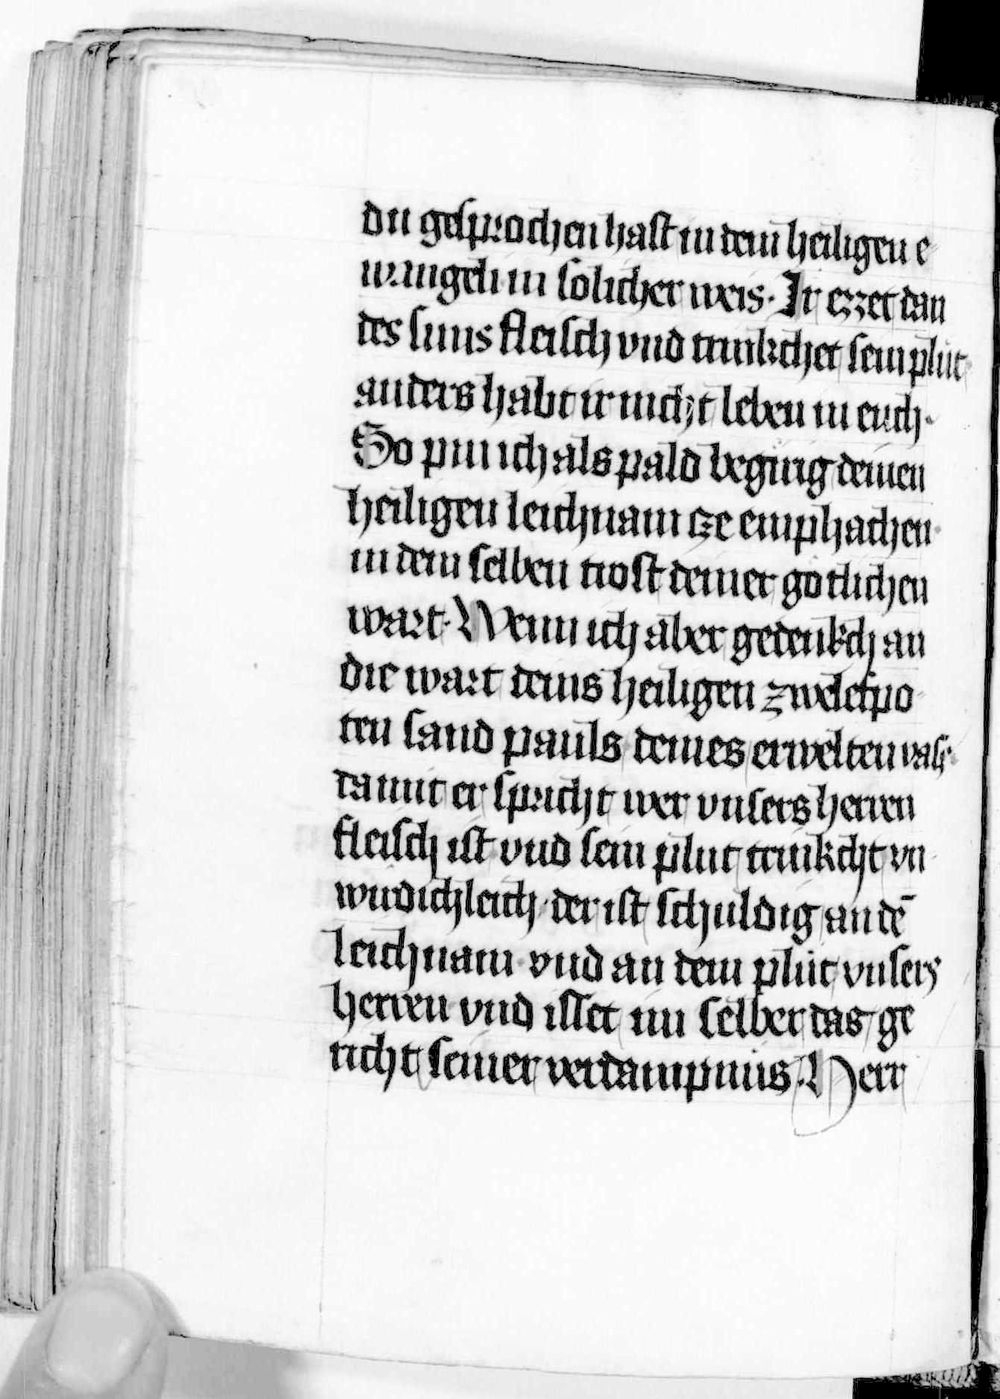 du gesprochen hast in dem heiligen e
wangeli in solicher weis· Ir ezzet dan
des suns fleisch vnd trinkchet sein plut
anders habt ir nicht leben in euch·
So pin ich als pald begirig deinen
heiligen leichnam cze emphachen·
in dem selben trost deiner gotlichen
wart· Wenn ich aber gedenkch an
die wart deins heiligen zwelefpo
ten sand pauls deines erwelten vas
da mit er spricht wer vnsers herren
fleisch ist vnd sein plut trinkcht vn
wirdichleich· der ist schuldig an dē
leichnam vnd an dem plut vnsers
herren vnd isset im selber das ge
richt seiner verdampnus· Herr